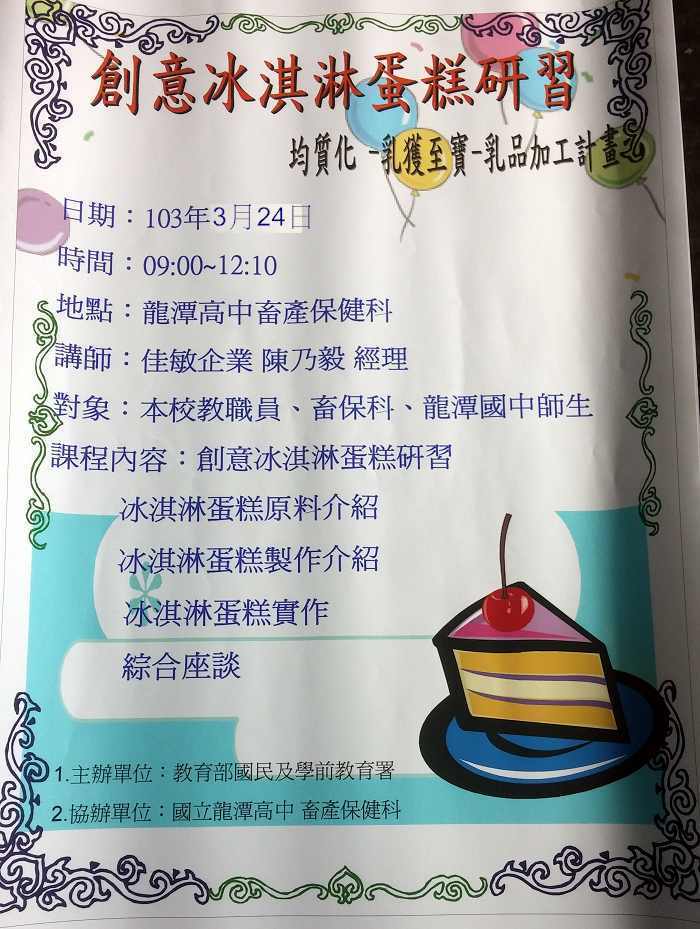 創意冰淇淋蛋糕研習
均質化 -乳獲至寶-乳品加工計畫
日期：103年3月24日
時間：09:00~12:10
地點：龍潭高中畜產保健科
講師：佳敏企業 陳乃毅 經理
對象：本校教職員、畜保科、龍潭國中師生
課程內容：創意冰淇淋蛋糕研習
冰淇淋蛋糕原料介紹
冰淇淋蛋糕製作介紹
冰淇淋蛋糕實作
綜合座談
1.主辦單位：教育部國民及學前教育署
2.協辦單位：國立龍潭高中 畜產保健科